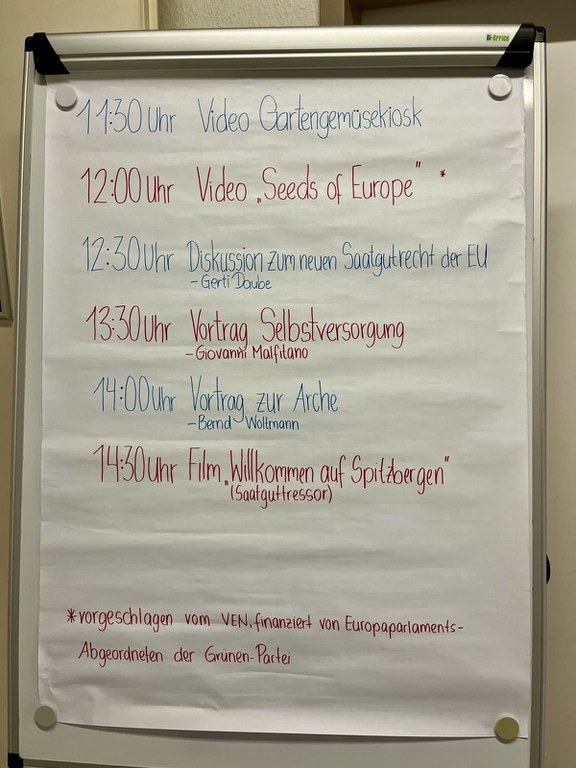 11:30 Uhr Video Gartengemüsekiosk
12:00 Uhr Video „Seeds of Europe" *
12:30 Uhr Diskussion zum neuen Saatgutrecht der EU
- Gerti Daube
13:30 Uhr Vortrag Selbstversorgung
- Giovanni Malfitano
14:00 Uhr Vortrag zur Arche
- Bernd Woltmann
14:30 Uhr Film „Willkommen auf Spitzbergen"
(Saatguttressor)
* vorgeschlagen vom VEN, finanziert von Europaparlaments-
Abgeordneten der Grünen-Partei